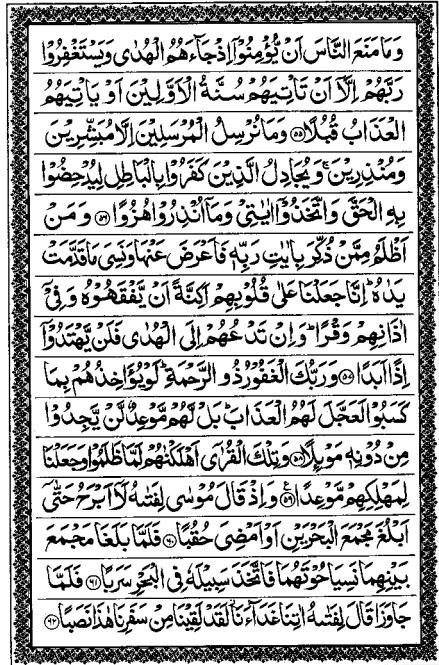 وَمَا مَنَعَ النَّاسَ اَنْ يُّؤْمِنُوْٓا اِذْ جَآءَهُمُ الْهُدٰى وَيَسْتَغْفِرُوْا
رَبَّهُمْ اِلَّآ اَنْ تَاْتِيَهُمْ سُنَّةُ الْاَوَّلِيْنَ اَوْ يَاْتِيَهُمُ
الْعَذَابُ قُبُلًا ﴿۵۵﴾ وَمَا نُرْسِلُ الْمُرْسَلِيْنَ اِلَّا مُبَشِّرِيْنَ
وَمُنْذِرِيْنَ ۚ وَيُجَادِلُ الَّذِيْنَ كَفَرُوْا بِالْبَاطِلِ لِيُدْحِضُوْا
بِهِ الْحَقَّ وَاتَّخَذُوْٓا اٰيٰتِيْ وَمَآ اُنْذِرُوْا هُزُوًا ﴿۵۶﴾ وَمَنْ
اَظْلَمُ مِمَّنْ ذُكِّرَ بِاٰيٰتِ رَبِّهٖ فَاَعْرَضَ عَنْهَا وَنَسِيَ مَا قَدَّمَتْ
يَدٰهُ ؕ اِنَّا جَعَلْنَا عَلٰى قُلُوْبِهِمْ اَكِنَّةً اَنْ يَّفْقَهُوْهُ وَفِيْٓ
اٰذَانِهِمْ وَقْرًا ؕ وَاِنْ تَدْعُهُمْ اِلَى الْهُدٰى فَلَنْ يَّهْتَدُوْٓا
اِذًا اَبَدًا ﴿۵۷﴾ وَرَبُّكَ الْغَفُوْرُ ذُو الرَّحْمَةِ ؕ لَوْ يُؤَاخِذُهُمْ بِمَا
كَسَبُوْا لَعَجَّلَ لَهُمُ الْعَذَابَ ؕ بَلْ لَّهُمْ مَّوْعِدٌ لَّنْ يَّجِدُوْا
مِنْ دُوْنِهٖ مَوْئِلًا ﴿۵۸﴾ وَتِلْكَ الْقُرٰٓى اَهْلَكْنٰهُمْ لَمَّا ظَلَمُوْا وَجَعَلْنَا
لِمَهْلِكِهِمْ مَّوْعِدًا ﴿۵۹﴾ ع وَاِذْ قَالَ مُوْسٰى لِفَتٰىهُ لَآ اَبْرَحُ حَتّٰٓى
اَبْلُغَ مَجْمَعَ الْبَحْرَيْنِ اَوْ اَمْضِيَ حُقُبًا ﴿۶۰﴾ فَلَمَّا بَلَغَا مَجْمَعَ
بَيْنِهِمَا نَسِيَا حُوْتَهُمَا فَاتَّخَذَ سَبِيْلَهٗ فِي الْبَحْرِ سَرَبًا ﴿۶۱﴾ فَلَمَّا
جَاوَزَا قَالَ لِفَتٰىهُ اٰتِنَا غَدَآءَنَا ؗ لَقَدْ لَقِيْنَا مِنْ سَفَرِنَا هٰذَا نَصَبًا ﴿۶۲﴾